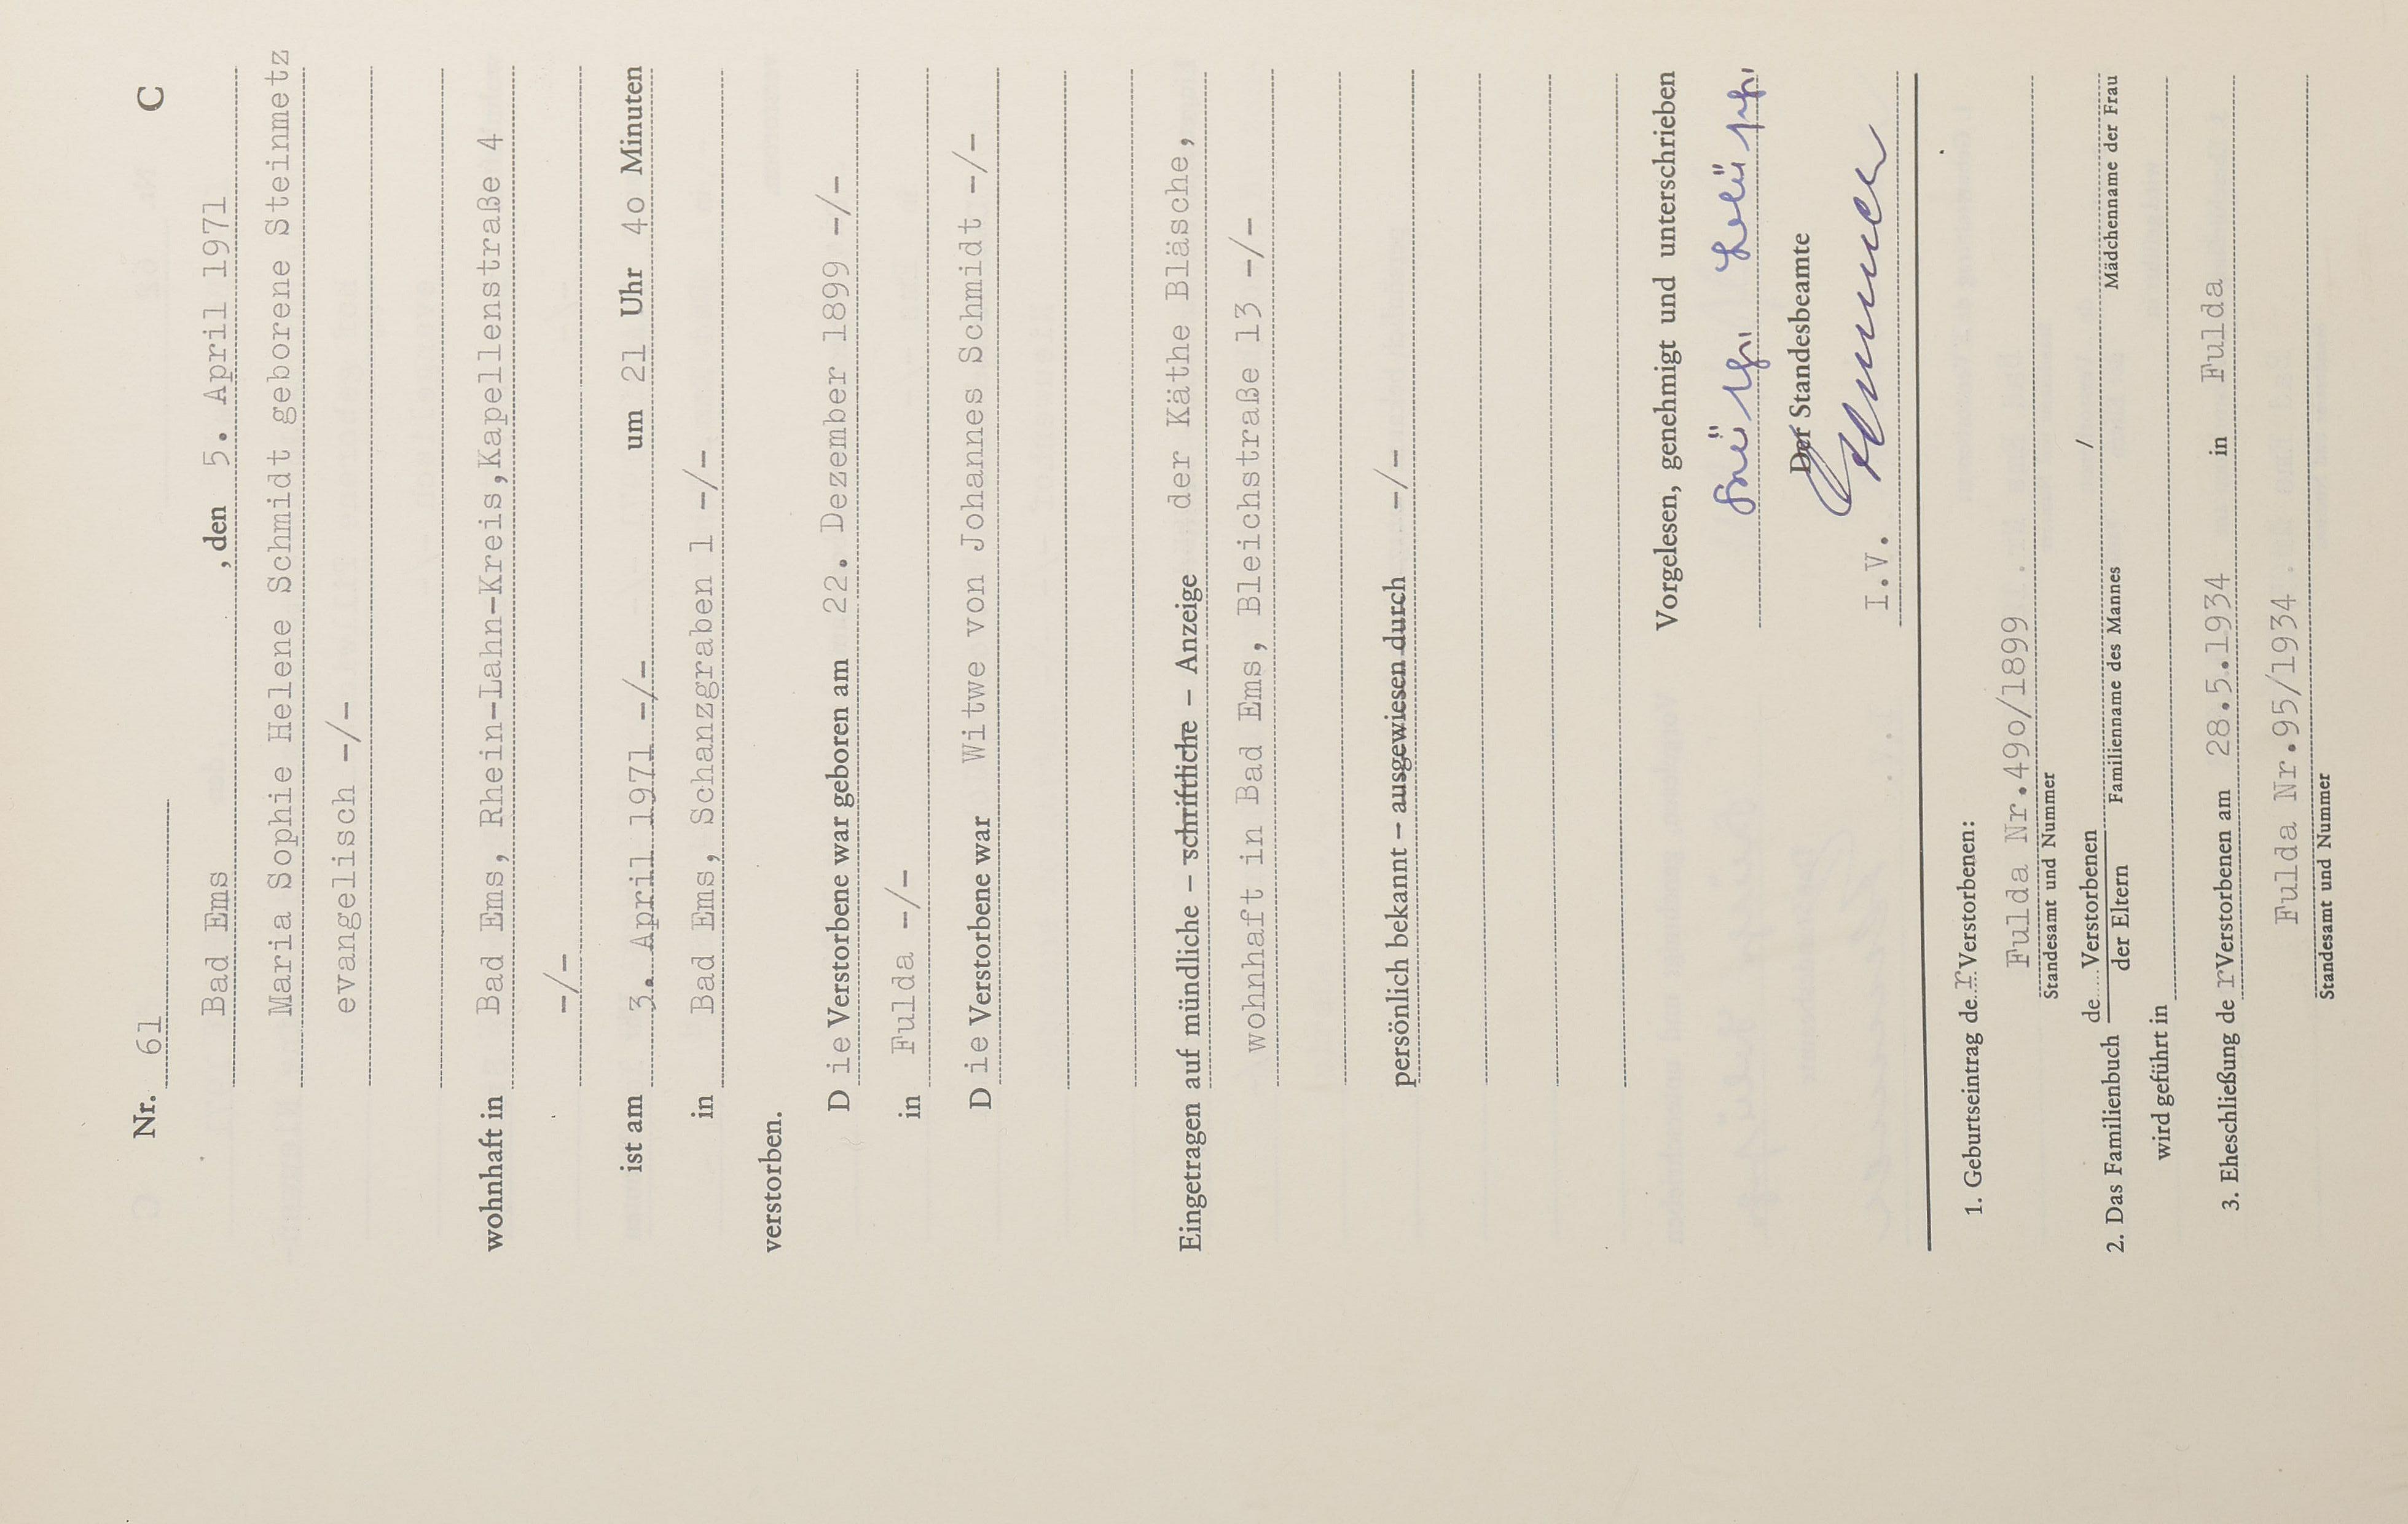 Nr. 61 C
Bad Ems , den 5. April 1971
Maria Sophie Helene Schmidt geborene Steinmetz
evangelisch -/-
wohnhaft in Bad Ems, Rhein-Lahn-Kreis,Kapellenstraße 4
-/-
ist am 3. April 1971 -/- um 21 Uhr 4o Minuten
in Bad Ems, Schanzgraben 1 -/-
verstorben.
Die Verstorbene war geboren am 22. Dezember 1899 -/-
in Fulda -/-
Die Verstorbene war Witwe von Johannes Schmidt -/-
Eingetragen auf mündliche – schriftliche – Anzeige der Käthe Bläsche,
wohnhaft in Bad Ems, Bleichstraße 13 -/-
persönlich bekannt – ausgewiesen durch -/-
Vorgelesen, genehmigt und unterschrieben
Der Standesbeamte
I.V.
1. Geburtseintrag der Verstorbenen:
Fulda Nr.49o/1899
Standesamt und Nummer
2. Das Familienbuch de.... Verstorbenen /
der Eltern Familienname des Mannes Mädchenname der Frau
wird geführt in
3. Eheschließung der Verstorbenen am 28.5.1934 in Fulda
Fulda Nr.95/1934
Standesamt und Nummer